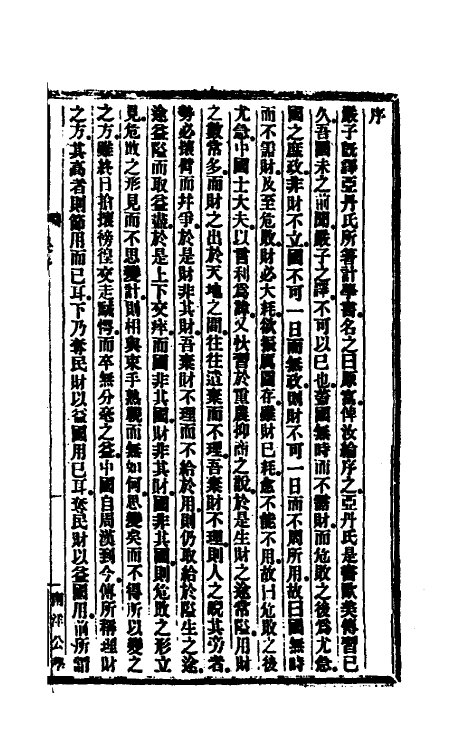 序
嚴子旣譯亞丹氏所著計學書名之曰原富俾汝綸序之亞丹氏是書歐美傳習已
久吾國未之前聞嚴子之譯不可以已也蓋國無時而不需財而危敗之後爲尤急
國之庶政非財不立國不可一日而無政則財不可一日而不周所用故曰國無時
而不需財及至危敗財必大耗欲振厲圖存雖財已耗愈不能不用故曰危敗之後
尤急中國士大夫以言利爲諱又忕習於重農抑商之說於是生財之途常隘用財
之數常多而財之出於天地之間往往遺棄而不理吾棄財不理則人之睨其旁者
勢必攘臂而幷爭於是財非其財吾棄財不理而不給於用則仍取給於隘生之途
途益隘而取益盡於是上下交瘁而國非其國財非其財國非其國則危敗之形立
見危敗之形見而不思變計則相與束手熟視而無如何思變矣而不得所以變之
之方雖終日搶攘徬徨交走駭愕而卒無分毫之益中國自周漢到今傳所稱理財
之方其高者則節用而已耳下乃奪民財以益國用已耳奪民財以益國用前所謂
南洋公學